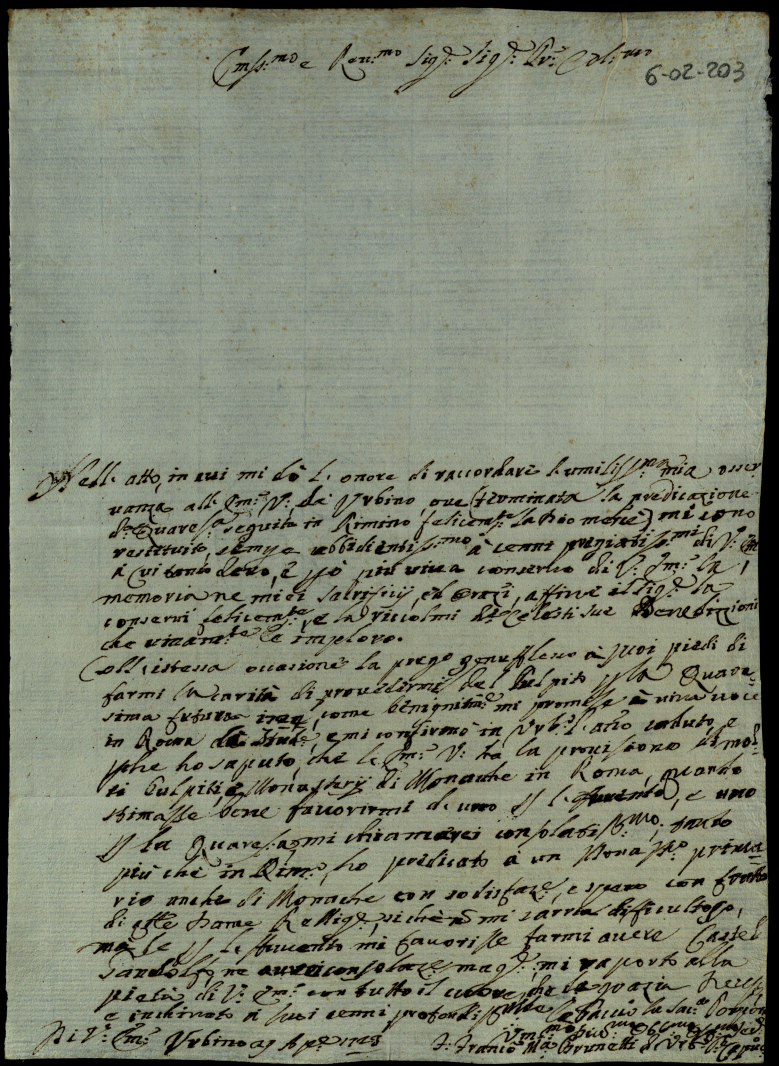 Em.mo e Reu.mo Sig.e Sig.e Pr̃on Col.mo
6-02-203
Nell' atto, in cui mi dò l' onore di raccordare l' umiliss.ma mia osser
uanza all' Em.a V.a da Urbino, oue (terminata la predicazione
Quares.a seguita in Rimino felicem.te mi sono
restituito, sempre ubbidientiss.mo à cenni pregiatiss.mi di V.a Em
à cui tanto deuo, e più uiua conseruo di V.a Em.a la
memoria ne miei Sacrificij, ed Orazi, affine il Sig.e la
conserui felicem.te, e la ricolmi de Celesti sue Benedizzioni
che uiuam.te le imploro.
Coll' istessa occasione la prego genuflesso à suoi piedi di
farmi la carità di prouedermi del Pulpito p la Quare
sima futura come benignam.e mi promise à uiua uoce
in Roma e mi confirmò in Urb.o l' ano caduto, e
perche ho saputo, che l' Em.a V.a ha la prouisione di mol
ti Pulpiti, e Monasterij di Monache in Roma, quando
stimasse bene fauorirmi di uno p l' Auuento, e uno
p la Quares.a mi chiamarei consolatiss.mo, tanto
più che in Rim.o ho predicato à un Monast.o prima
rio anche di Monache con sodisfaz.e, e spero con frutto
di esse Dame Relig.e, sicche nõ mi sarria difficultoso,
mà se p l' Auuento mi fauorisse farmi auere Castel
Gandolfo, ne aurei consolaz.e mag.e, mi raporto alla
pietà di V.a Em.a con tutto il cuore, che la grazia
e inchinato à suoi cenni profondiss.te le baccio la Sac.a Porpora
Di V.a Em.a Urbino 27 Ap.e 1728
F. Franc.o Ma Brunetti di Urb.o Capuc